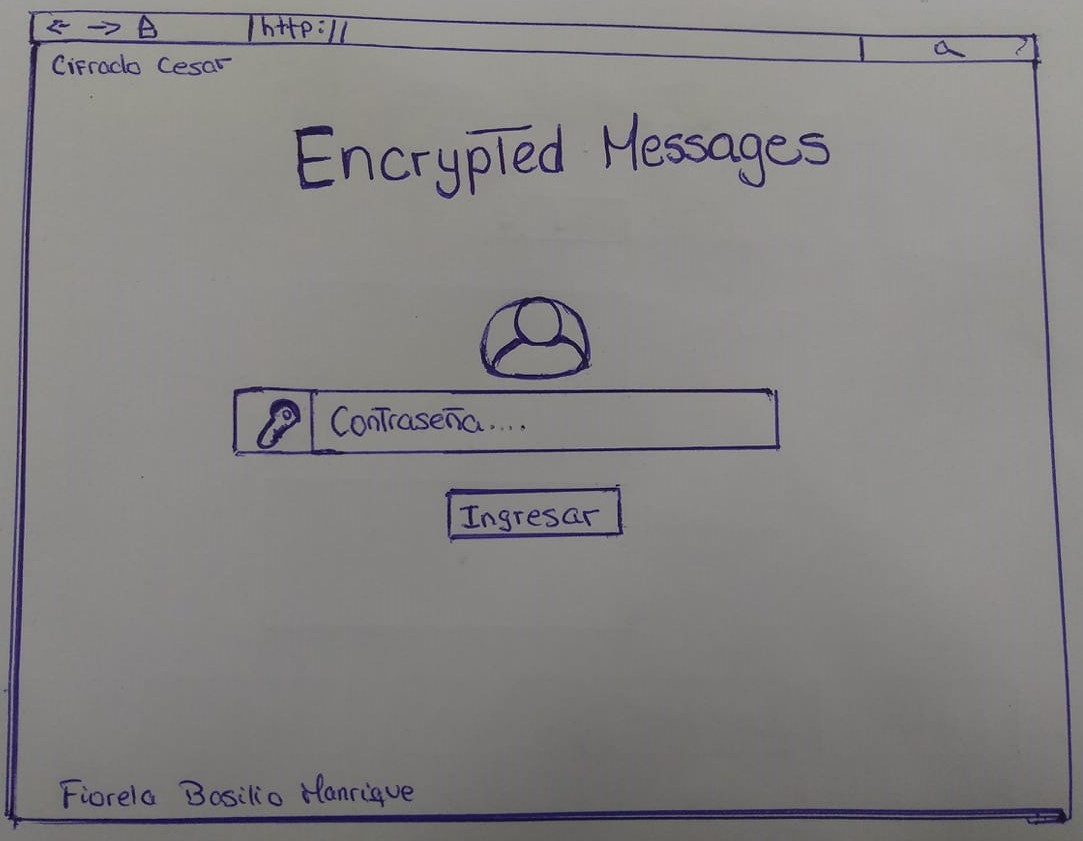 http://
Cifrado Cesar
Encrypted Messages
Contraseña....
Ingresar
Fiorela Basilio Manrique